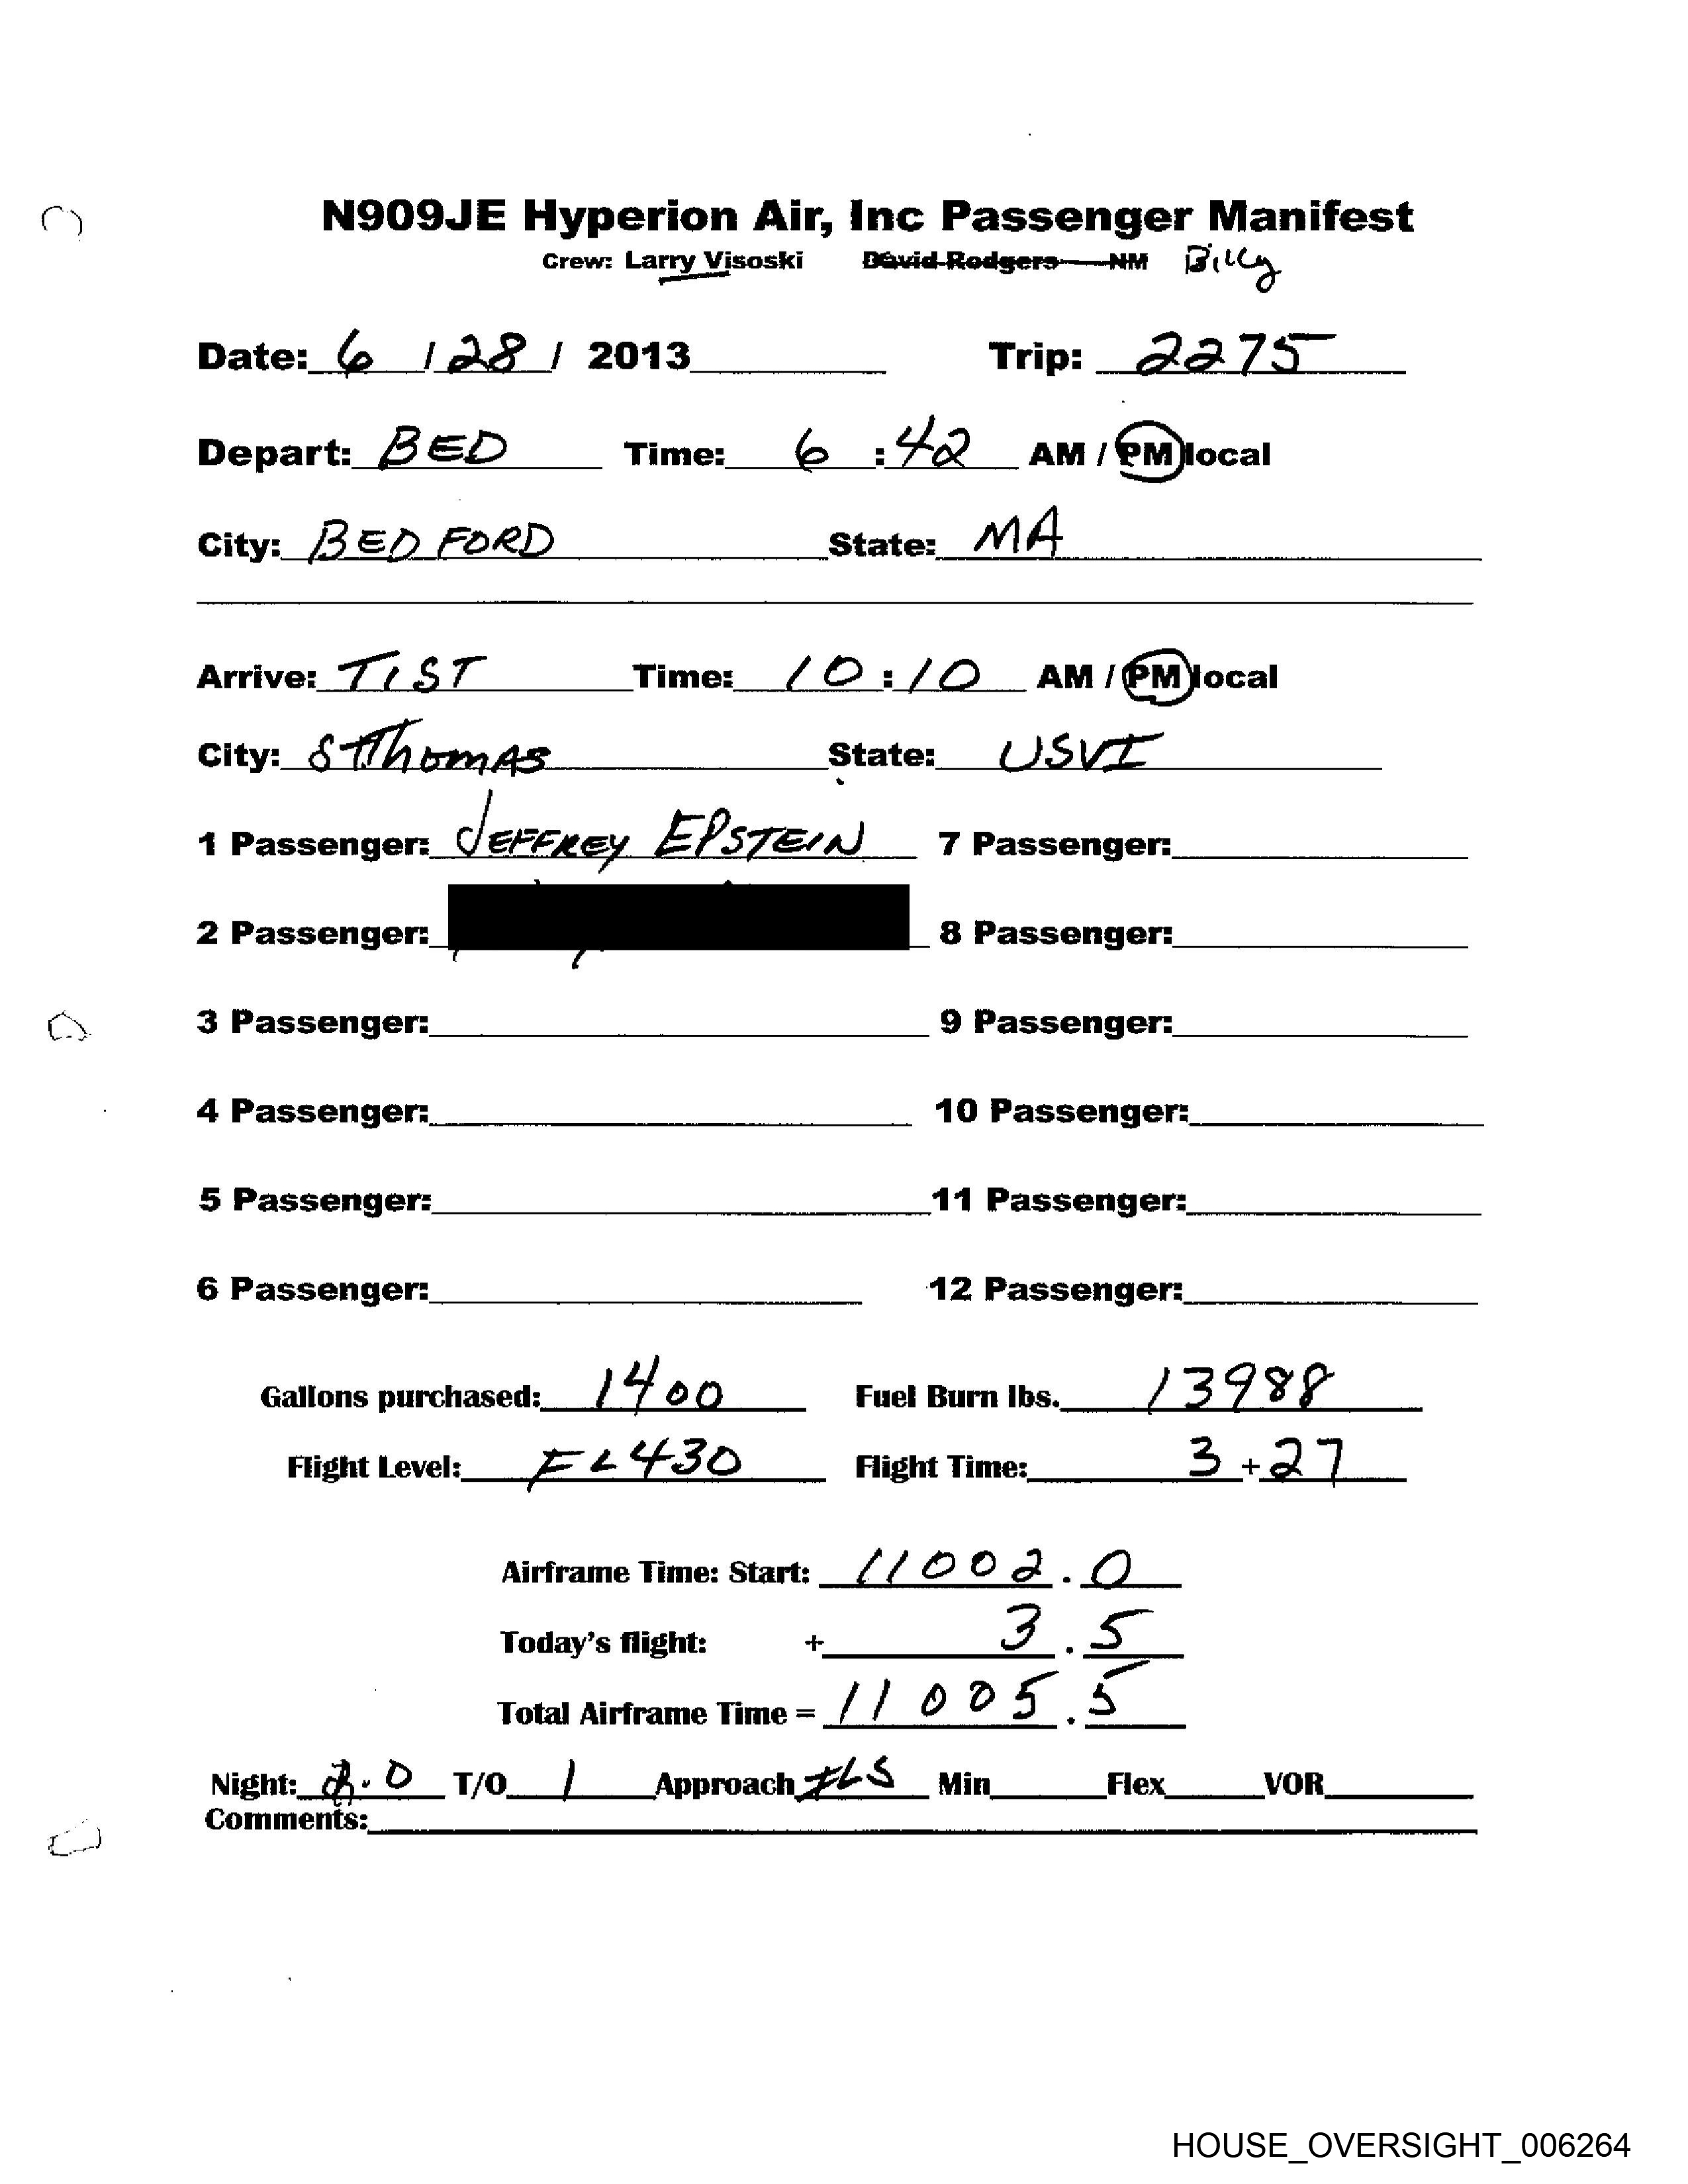 N909JE Hyperion Air, Inc Passenger Manifest
Crew: Larry Visoski David Rodgers NM Billy
Date: 6 / 28 / 2013 Trip: 2275
Depart: BED Time: 6 : 42 AM / PM local
City: BEDFORD State: MA
Arrive: TIST Time: 10 : 10 AM / PM local
City: St Thomas State: USVI
1 Passenger: JEFFREY EPSTEIN 7 Passenger:
2 Passenger: 8 Passenger:
3 Passenger: 9 Passenger:
4 Passenger: 10 Passenger:
5 Passenger: 11 Passenger:
6 Passenger: 12 Passenger:
Gallons purchased: 1400 Fuel Burn lbs. 13988
Flight Level: FL430 Flight Time: 3 + 27
Airframe Time: Start: 11002 . 0
Today's flight: + 3 . 5
Total Airframe Time = 11005 . 5
Night: 2.0 T/O 1 Approach ILS Min Flex VOR
Comments:
HOUSE_OVERSIGHT_006264